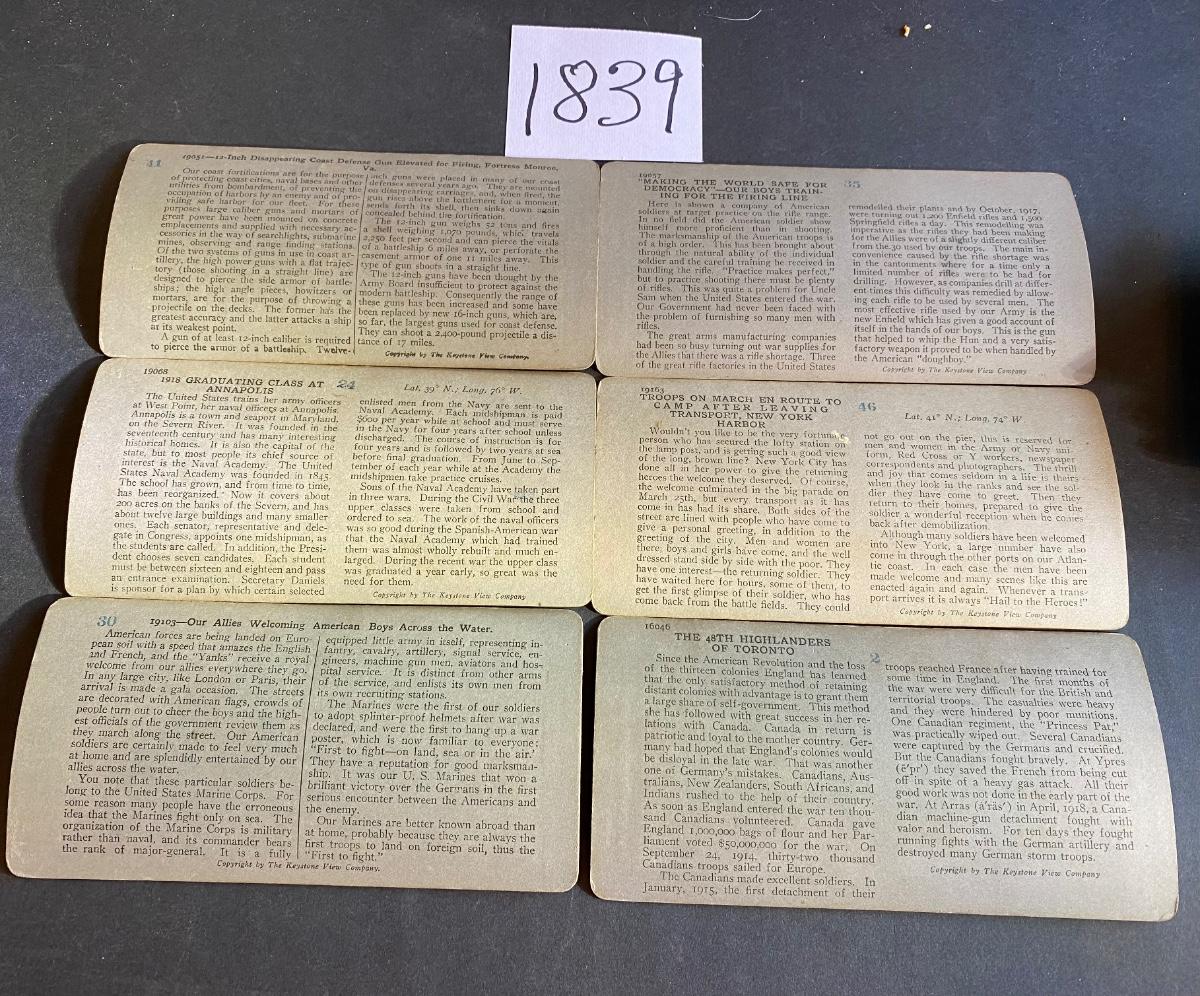 1839
41
19051—12-Inch Disappearing Coast Defense Gun Elevated for Firing, Fortress Monroe,
Va.
Our coast fortifications are for the purpose
of protecting coast cities, naval bases and other
utilities from bombardment, of preventing the
occupation of harbors by an enemy and of pro-
viding safe harbor for our fleet. For these
purposes large caliber guns and mortars of
great power have been mounted on concrete
emplacements and supplied with necessary ac-
cessories in the way of searchlights, submarine
mines, observing and range finding stations.
Of the two systems of guns in use in coast ar-
tillery, the high power guns with a flat trajec-
tory (those shooting in a straight line) are
designed to pierce the side armor of battle-
ships; the high angle pieces, howitzers or
mortars, are for the purpose of throwing a
projectile on the decks. The former has the
greatest accuracy and the latter attacks a ship
at its weakest point.
A gun of at least 12-inch caliber is required
to pierce the armor of a battleship. Twelve-
inch guns were placed in many of our coast
defenses several years ago. They are mounted
on disappearing carriages, and, when fired, the
gun rises above the battlement for a moment,
sends forth its shell, then sinks down again
concealed behind the fortification.
The 12-inch gun weighs 52 tons and fires
a shell weighing 1,070 pounds, which travels
2,250 feet per second and can pierce the vitals
of a battleship 6 miles away, or perforate the
casement armor of one 11 miles away. This
type of gun shoots in a straight line.
The 12-inch guns have been thought by the
Army Board insufficient to protect against the
modern battleship. Consequently the range of
these guns has been increased and some have
been replaced by new 16-inch guns, which are,
so far, the largest guns used for coast defense.
They can shoot a 2,400-pound projectile a dis-
tance of 17 miles.
Copyright by The Keystone View Company.
19057
"MAKING THE WORLD SAFE FOR
DEMOCRACY"—OUR BOYS TRAIN-
ING FOR THE FIRING LINE
35
Here is shown a company of American
soldiers at target practice on the rifle range.
In no field did the American soldier show
himself more proficient than in shooting.
The marksmanship of the American troops is
of a high order. This has been brought about
through the natural ability of the individual
soldier and the careful training he received in
handling the rifle. "Practice makes perfect,"
but to practice shooting there must be plenty
of rifles. This was quite a problem for Uncle
Sam when the United States entered the war.
Our Government had never been faced with
the problem of furnishing so many men with
rifles.
The great arms manufacturing companies
had been so busy turning out war supplies for
the Allies that there was a rifle shortage. Three
of the great rifle factories in the United States
remodelled their plants and by October, 1917,
were turning out 1,200 Enfield rifles and 1,500
Springfield rifles a day. This remodelling was
imperative as the rifles they had been making
for the Allies were of a slightly different caliber
from the .30 used by our troops. The main in-
convenience caused by the rifle shortage was
in the cantonments where for a time only a
limited number of rifles were to be had for
drilling. However, as companies drill at differ-
ent times this difficulty was remedied by allow-
ing each rifle to be used by several men. The
most effective rifle used by our Army is the
new Enfield which has given a good account of
itself in the hands of our boys. This is the gun
that helped to whip the Hun and a very satis-
factory weapon it proved to be when handled by
the American "doughboy."
Copyright by The Keystone View Company
19068
1918 GRADUATING CLASS AT
ANNAPOLIS
24
Lat. 39° N.; Long. 76° W.
The United States trains her army officers
at West Point, her naval officers at Annapolis.
Annapolis is a town and seaport in Maryland,
on the Severn River. It was founded in the
seventeenth century and has many interesting
historical homes. It is also the capital of the
state, but to most people its chief source of
interest is the Naval Academy. The United
States Naval Academy was founded in 1845.
The school has grown, and from time to time,
has been reorganized. Now it covers about
200 acres on the banks of the Severn, and has
about twelve large buildings and many smaller
ones. Each senator, representative and dele-
gate in Congress, appoints one midshipman, as
the students are called. In addition, the Presi-
dent chooses seven candidates. Each student
must be between sixteen and eighteen and pass
an entrance examination. Secretary Daniels
is sponsor for a plan by which certain selected
enlisted men from the Navy are sent to the
Naval Academy. Each midshipman is paid
$600 per year while at school and must serve
in the Navy for four years after school unless
discharged. The course of instruction is for
four years and is followed by two years at sea
before final graduation. From June to Sep-
tember of each year while at the Academy the
midshipmen take practice cruises.
Sons of the Naval Academy have taken part
in three wars. During the Civil War the three
upper classes were taken from school and
ordered to sea. The work of the naval officers
was so good during the Spanish-American war
that the Naval Academy which had trained
them was almost wholly rebuilt and much en-
larged. During the recent war the upper class
was graduated a year early, so great was the
need for them.
Copyright by The Keystone View Company
19163
TROOPS ON MARCH EN ROUTE TO
CAMP AFTER LEAVING
TRANSPORT, NEW YORK
HARBOR
46
Lat. 41° N.; Long. 74° W
Wouldn't you like to be the very fortunate
person who has secured the lofty station on
the lamp post, and is getting such a good view
of the long, brown line? New York City has
done all in her power to give the returning
heroes the welcome they deserved. Of course,
the welcome culminated in the big parade on
March 25th, but every transport as it has
come in has had its share. Both sides of the
street are lined with people who have come to
give a personal greeting, in addition to the
greeting of the city. Men and women are
there, boys and girls have come, and the well
dressed stand side by side with the poor. They
have one interest—the returning soldier. They
have waited here for hours, some of them, to
get the first glimpse of their soldier, who has
come back from the battle fields. They could
not go out on the pier, this is reserved for
men and women in the Army or Navy uni-
form, Red Cross or Y workers, newspaper
correspondents and photographers. The thrill
and joy that comes seldom in a life is theirs
when they look in the ranks and see the sol-
dier they have come to greet. Then they
return to their homes, prepared to give the
soldier a wonderful reception when he comes
back after demobilization.
Although many soldiers have been welcomed
into New York, a large number have also
come in through the other ports on our Atlan-
tic coast. In each case the men have been
made welcome and many scenes like this are
enacted again and again. Whenever a trans-
port arrives it is always "Hail to the Heroes!"
Copyright by The Keystone View Company
30
19103—Our Allies Welcoming American Boys Across the Water.
American forces are being landed on Euro-
pean soil with a speed that amazes the English
and French, and the "Yanks" receive a royal
welcome from our allies everywhere they go.
In any large city, like London or Paris, their
arrival is made a gala occasion. The streets
are decorated with American flags, crowds of
people turn out to cheer the boys and the high-
est officials of the government review them as
they march along the street. Our American
soldiers are certainly made to feel very much
at home and are splendidly entertained by our
allies across the water.
You note that these particular soldiers be-
long to the United States Marine Corps. For
some reason many people have the erroneous
idea that the Marines fight only on sea. The
organization of the Marine Corps is military
rather than naval, and its commander bears
the rank of major-general. It is a fully
equipped little army in itself, representing in-
fantry, cavalry, artillery, signal service, en-
gineers, machine gun men, aviators and hos-
pital service. It is distinct from other arms
of the service, and enlists its own men from
its own recruiting stations.
The Marines were the first of our soldiers
to adopt splinter-proof helmets after war was
declared, and were the first to hang up a war
poster, which is now familiar to everyone:
"First to fight—on land, sea or in the air."
They have a reputation for good marksman-
ship. It was our U. S. Marines that won a
brilliant victory over the Germans in the first
serious encounter between the Americans and
the enemy.
Our Marines are better known abroad than
at home, probably because they are always the
first troops to land on foreign soil, thus the
"First to fight."
Copyright by The Keystone View Company.
16046
THE 48TH HIGHLANDERS
OF TORONTO
2
Since the American Revolution and the loss
of the thirteen colonies England has learned
that the only satisfactory method of retaining
distant colonies with advantage is to grant them
a large share of self-government. This method
she has followed with great success in her re-
lations with Canada. Canada in return is
patriotic and loyal to the mother country. Ger-
many had hoped that England's colonies would
be disloyal in the late war. That was another
one of Germany's mistakes. Canadians, Aus-
tralians, New Zealanders, South Africans, and
Indians rushed to the help of their country.
As soon as England entered the war ten thou-
sand Canadians volunteered. Canada gave
England 1,000,000 bags of flour and her Par-
liament voted $50,000,000 for the war. On
September 24, 1914, thirty-two thousand
Canadians troops sailed for Europe.
The Canadians made excellent soldiers. In
January, 1915, the first detachment of their
troops reached France after having trained for
some time in England. The first months of
the war were very difficult for the British and
territorial troops. The casualties were heavy
and they were hindered by poor munitions.
One Canadian regiment, the "Princess Pat,"
was practically wiped out. Several Canadians
were captured by the Germans and crucified.
But the Canadians fought bravely. At Ypres
(e'pr') they saved the French from being cut
off in spite of a heavy gas attack. All their
good work was not done in the early part of the
war. At Arras (á'rás') in April, 1918, a Cana-
dian machine-gun detachment fought with
valor and heroism. For ten days they fought
running fights with the German artillery and
destroyed many German storm troops.
Copyright by The Keystone View Company